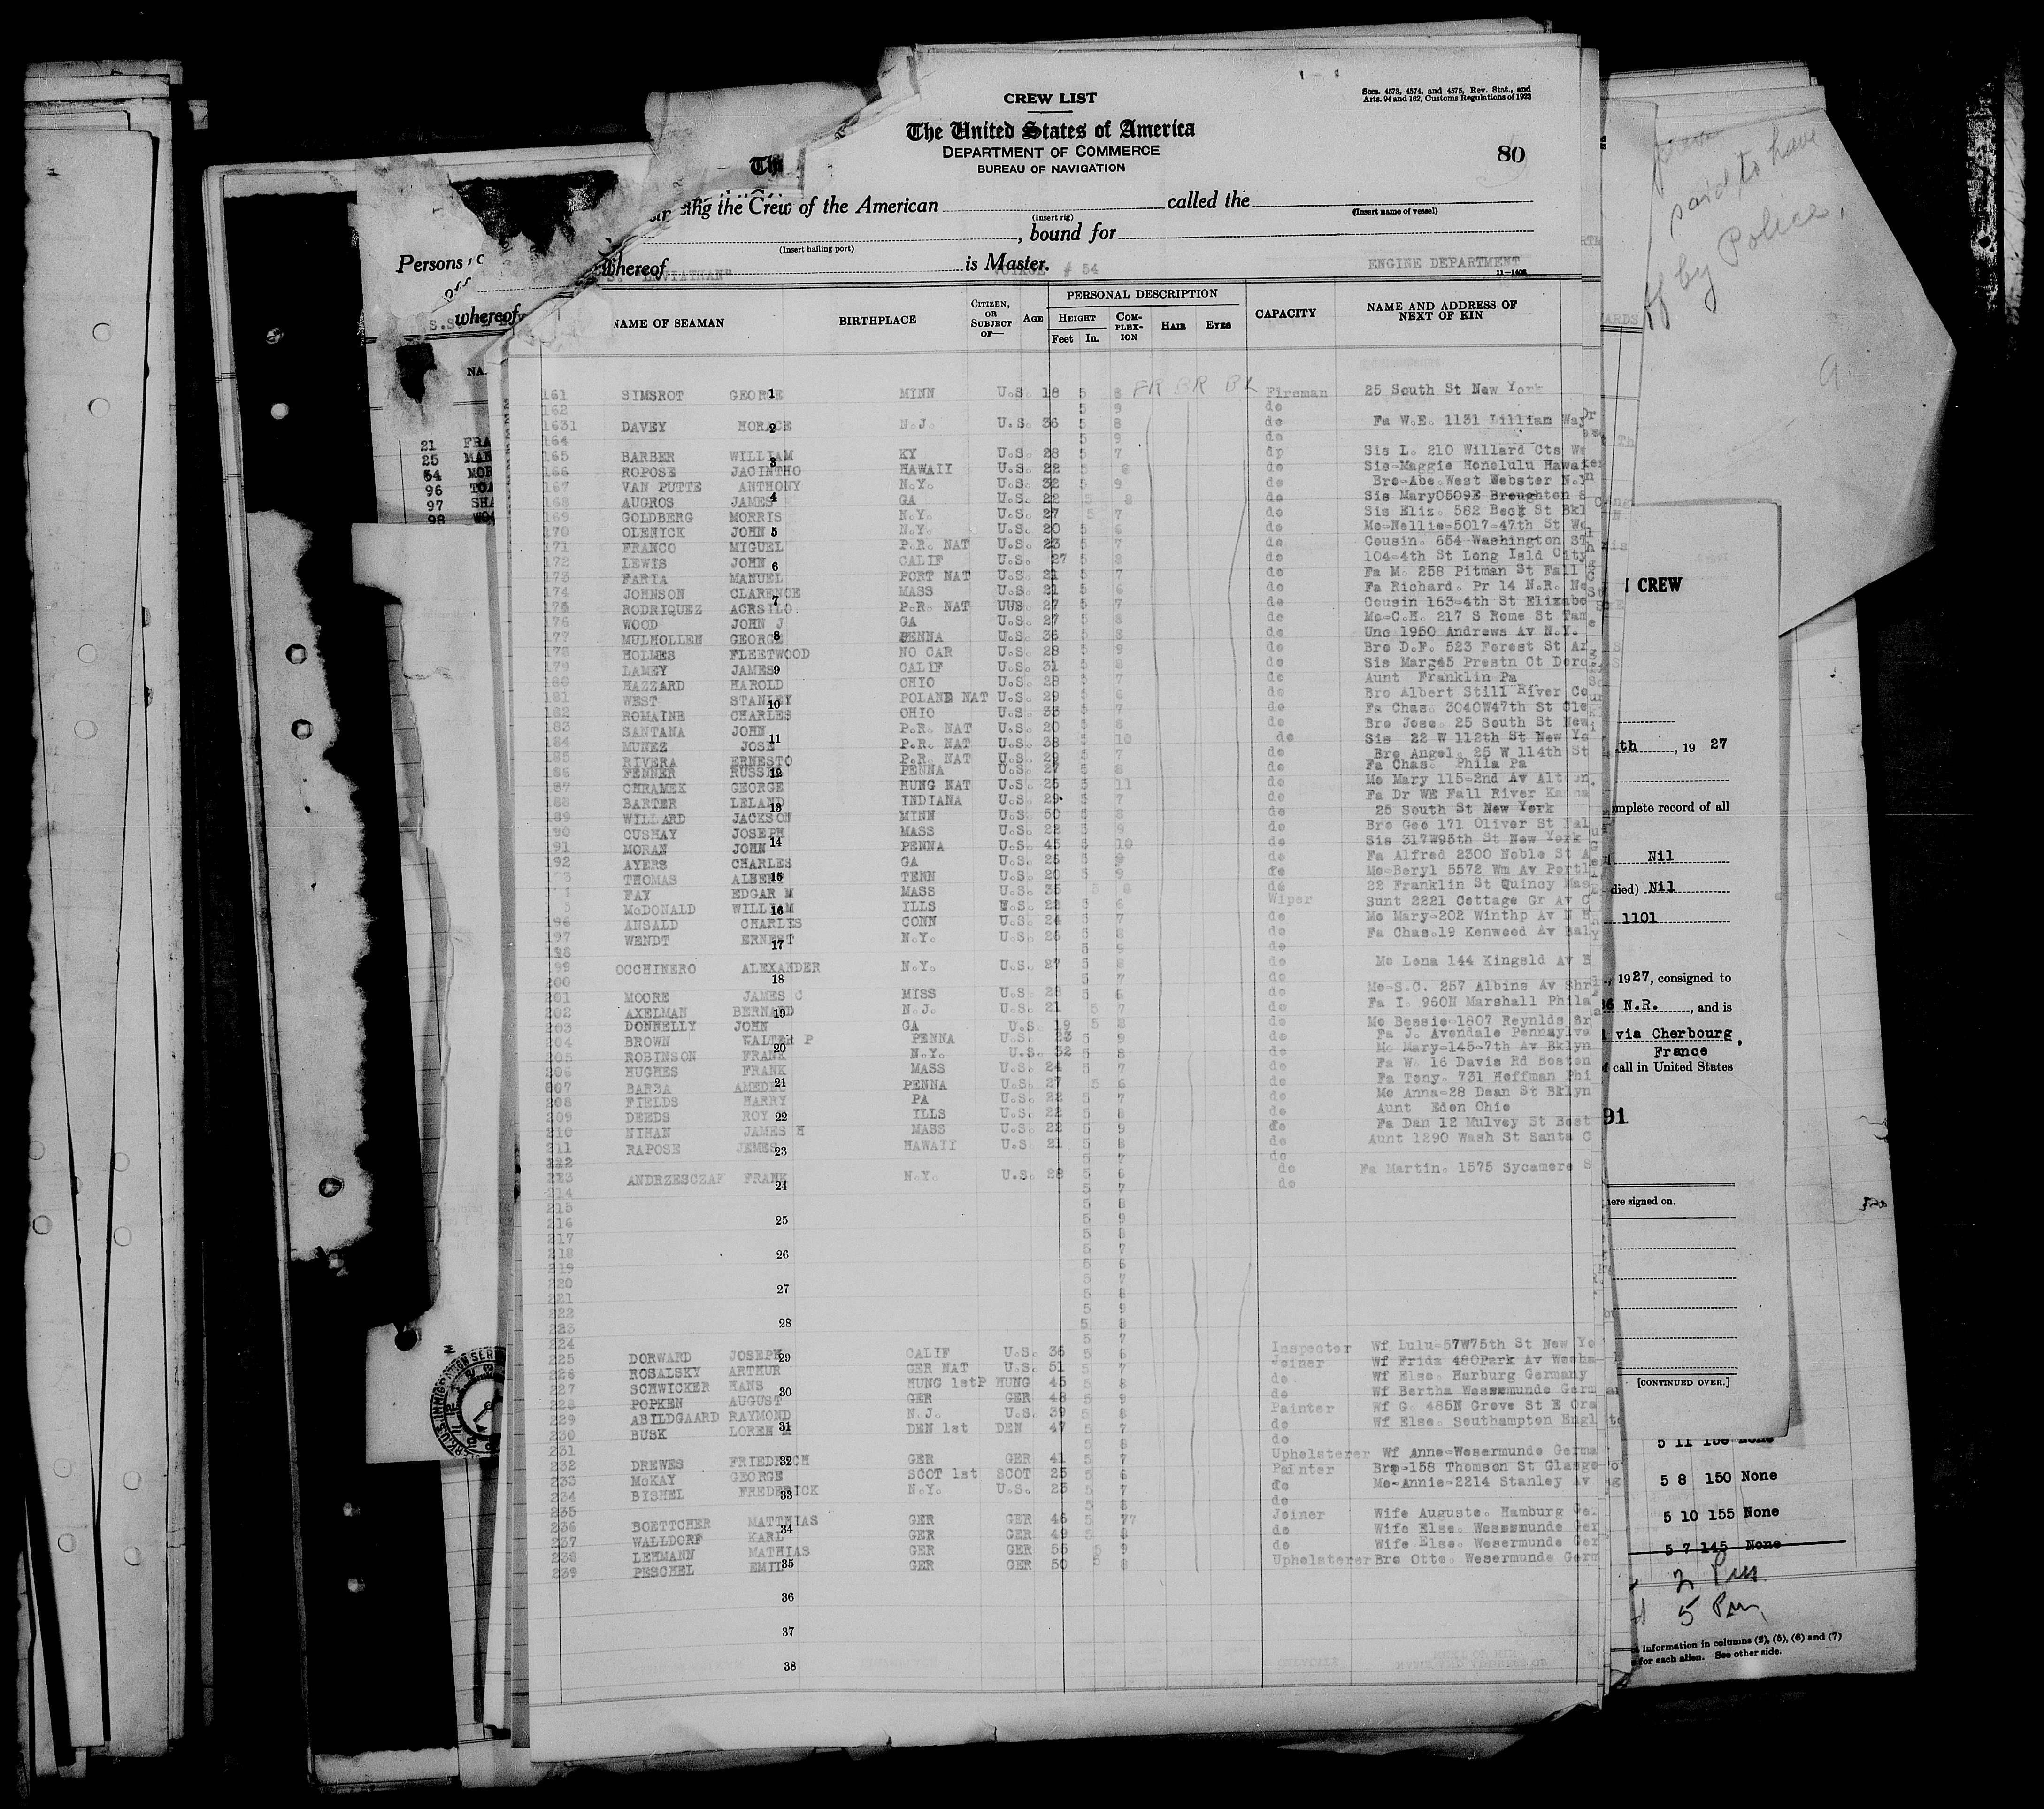 CREW LIST
Secs. 4573, 4574, and 4575, Rev. Stat., and
Arts. 94 and 162, Customs Regulations of 1923
The United States of America
DEPARTMENT OF COMMERCE
BUREAU OF NAVIGATION
80
the Crew of the American called the
(Insert rig) (Insert name of vessel)
, bound for
(Insert hailing port)
whereof is Master.
LEVIATHAN" VOYAGE # 54 ENGINE DEPARTMENT
11-1408
NAME OF SEAMAN BIRTHPLACE CITIZEN, OR SUBJECT OF— AGE PERSONAL DESCRIPTION HEIGHT Feet In. COMPLEXION HAIR EYES CAPACITY NAME AND ADDRESS OF NEXT OF KIN
161 SIMSROT GEORGE MINN U.S. 18 5 8 FR BR BR Fireman 25 South St New York
162 5 9 do
1631 DAVEY HORACE N.J. U.S. 36 5 8 do Fa W.E. 1131 Lilliam Way
164 5 9 do
165 BARBER WILLIAM KY U.S. 28 5 7 dp Sis L. 210 Willard Cts We
166 ROPOSE JACINTHO HAWAII U.S. 22 5 8 do Sis-Maggie Honolulu Hawai
167 VAN PUTTE ANTHONY N.Y. U.S. 32 5 9 do Bro-Abe.West Webster N.Y
168 AUGROS JAMES GA U.S. 22 5 8 do Sis Mary0509E Broughton S
169 GOLDBERG MORRIS N.Y. U.S. 27 5 7 do Sis Eliz. 582 Beck St Bkl
170 OLENICK JOHN N.Y. U.S. 20 5 6 do Mo-Nellie-5017-47th St Wo
171 FRANCO MIGUEL P.R. NAT U.S. 23 5 7 do Cousin. 654 Washington ST
172 LEWIS JOHN CALIF U.S. 27 5 8 do 104-4th St Long Isld City
173 FARIA MANUEL PORT NAT U.S. 21 5 7 do Fa M. 258 Pitman St Fall
174 JOHNSON CLARENCE MASS U.S. 21 5 6 do Fa Richard. Pr 14 N.R. Ne
175 RODRIQUEZ ACRSILO. P.R. NAT UUS 27 5 7 do Cousin 163-4th St Elizabe
176 WOOD JOHN J GA U.S. 27 5 8 do Mo-C.H. 217 S Rome St Tam
177 MULHOLLEN GEORGE PENNA U.S. 36 5 8 do Unc 1950 Andrews Av N.Y.
178 HOLMES FLEETWOOD NO CAR U.S. 28 5 9 do Bro D.F. 523 Forest St Ar
179 LAMEY JAMES CALIF U.S. 31 5 8 do Sis Marg45 Prestn Ct Dorc
180 HAZZARD HAROLD OHIO U.S. 28 5 7 do Aunt Franklin Pa
181 WEST STANLEY POLAND NAT U.S. 29 5 6 do Bro Albert Still River Co
182 ROMAINE CHARLES OHIO U.S. 33 5 7 do Fa Chas. 3040W47th St Cle
183 SANTANA JOHN P.R. NAT U.S. 20 5 8 do Bro Jose. 25 South St New
184 MUNEZ JOSE P.R. NAT U.S. 38 5 10 do Sis 22 W 112th St New Yo
185 RIVERA ERNESTO P.R. NAT U.S. 29 5 7 do Bro Angel. 25 W 114th St
186 FENNER RUSSEL PENNA U.S. 27 5 8 do Fa Chas. Phila Pa
187 CHRAMEK GEORGE HUNG NAT U.S. 25 5 11 do Mo Mary 115-2nd Av Alt
188 BARTER LELAND INDIANA U.S. 29 5 7 do Fa Dr WE Fall River Kansa
189 WILLARD JACKSON MINN U.S. 50 5 8 do 25 South St New York
190 CUSHAY JOSEPH MASS U.S. 22 5 9 do Bro Geo 171 Oliver St
191 MORAN JOHN PENNA U.S. 45 5 10 do Sis 317W95th St New York
192 AYERS CHARLES GA U.S. 25 5 8 do Fa Alfred 2300 Noble St A
3 THOMAS ALBERT TENN U.S. 20 5 9 do Mo-Beryl 5572 Wm Av Portl
4 FAY EDGAR M MASS U.S. 35 5 8 do 22 Franklin St Quincy Mas
5 McDONALD WILLIAM ILLS U.S. 22 5 6 Wiper Sunt 2221 Cottage Gr Av C
196 ANSALD CHARLES CONN U.S. 24 5 7 do Mo Mary-202 Winthp Av N H
197 WENDT ERNEST N.Y. U.S. 26 5 8 do Fa Chas.19 Kenwood Av Bal
198 5 9 do
199 OCCHINERO ALEXANDER N.Y. U.S. 27 5 8 do Mo Lena 144 Kingsld Av B
200 5 7 do
201 MOORE JAMES C MISS U.S. 28 5 6 do Mo-S.C. 257 Albins Av Shr
202 AXELMAN BERNARD N.J. U.S. 21 5 7 do Fa I. 960N Marshall Phila
203 DONNELLY JOHN GA U.S. 19 5 8 do Mo Bessie-1807 Reynlds Sr
204 BROWN WALTER P PENNA U.S. 23 5 9 do Fa J. Avondale Pennsylva
205 ROBINSON FRANK N.Y. U.S. 32 5 8 do Mo Mary-145-7th Av Bklyn
206 HUGHES FRANK MASS U.S. 24 5 7 do Fa W. 16 Davis Rd Boston
207 BARBA AMEDEO PENNA U.S. 27 5 6 do Fa Tony. 731 Hoffman Phi
208 FIELDS HARRY PA U.S. 22 5 7 do Mo Anna-28 Dean St Bklyn
209 DEEDS ROY ILLS U.S. 22 5 8 do Aunt Eden Ohio
210 NIHAN JAMES H MASS U.S. 22 5 9 do Fa Dan 12 Mulvey St Bost
211 RAPOSE JEMES HAWAII U.S. 21 5 8 do Aunt 1290 Wash St Santa C
212 5 7 do
223 ANDRZESCZAF FRANK N.Y. U.S. 28 5 6 do Fa Martin. 1575 Sycamore S
214 5 7 do
215 5 8
216 5 9
217 5 8
218 5 7
219 5 6
220 5 7
221 5 8
222 5 9
223 5 8
224 5 7
225 DORWARD JOSEPH CALIF U.S. 36 5 6 Inspector Wf Lulu-57W75th St New Yo
226 ROSALSKY ARTHUR GER NAT U.S. 51 5 7 Joiner Wf Frida 480Park Av Weeha
227 SCHWICKER HANS HUNG 1stP HUNG 45 5 8 do Wf Else. Harburg Germany
228 POPKEN AUGUST GER GER 48 5 9 do Wf Bertha Wesermunde Germ
229 ABILDGAARD RAYMOND N.J. U.S. 39 5 8 Painter Wf G. 485N Grove St E Ora
230 BUSK LOREN DEN 1st DEN 47 5 7 do Wf Else. Southampton Engl
231 5 8 do
232 DREWES FRIEDRICH GER GER 41 5 7 Upholsterer Wf Anne-Wesermunde Germa
233 McKAY GEORGE SCOT 1st SCOT 25 5 6 Painter Bro-158 Thomson St Glasgo
234 BISHEL FREDERICK N.Y. U.S. 23 5 7 do Mo-Annie-2214 Stanley Av
235 5 8 do
236 BOETTCHER MATTHIAS GER GER 46 5 77 Joiner Wife Auguste. Hamburg Ge
237 WALLDORF KARL GER GER 49 5 8 do Wife Else. Wesermunde Ger
238 LEHMANN MATHIAS GER GER 55 5 9 do Wife Else. Wesermunde Ger
239 PESCHEL EMIL GER GER 50 5 8 Upholsterer Bro Otto. Wesermunde Germ
1
2
3
4
5
6
7
8
9
10
11
12
13
14
15
16
17
18
19
20
21
22
23
24
25
26
27
28
29
30
31
32
33
34
35
36
37
38
Persons
whereof
21 FRA
25 MAN
54 MOR
96 TOA
97 SHA
98 WOO
said to have
off by Police.
CREW
th , 19 27
complete record of all
Nil
died) Nil
1101
, 1927, consigned to
N.R. , and is
via Cherbourg,
France
call in United States
91
here signed on.
[CONTINUED OVER.]
5 11 None
5 8 150 None
5 10 155 None
5 7 145 None
2 Pm
5 Pm
information in columns (2), (5), (6) and (7)
for each alien. See other side.